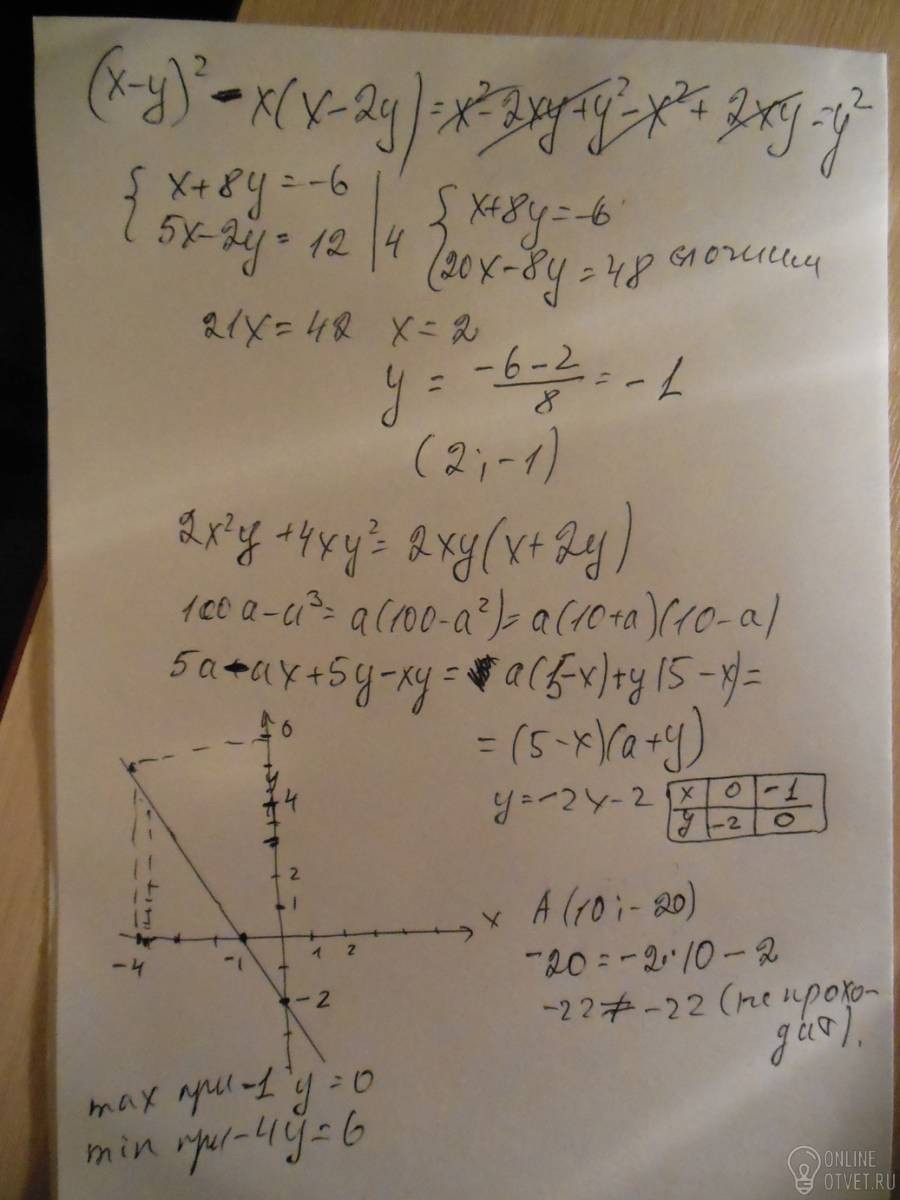 (x-y)² - x(x-2y) = x² - 2xy + y² - x² + 2xy = y²
{ x+8y = -6
5x-2y = 12 | 4
{ x+8y = -6
20x-8y = 48 сложим
21x = 42 x = 2
y = (-6-2)/8 = -1
(2; -1)
2x²y + 4xy² = 2xy(x+2y)
100a - a³ = a(100-a²) = a(10+a)(10-a)
5a - ax + 5y - xy = a(5-x) + y(5-x) =
= (5-x)(a+y)
y = -2x-2
x 0 -1
y -2 0
6
4
2
1
-4 -1 1 2 x
-2
A(10; -20)
-20 = -2·10 - 2
-22 ≠ -22 (не прохо-
дит).
max при -1 y = 0
min при -4 y = 6
ONLINE
OTVET.RU